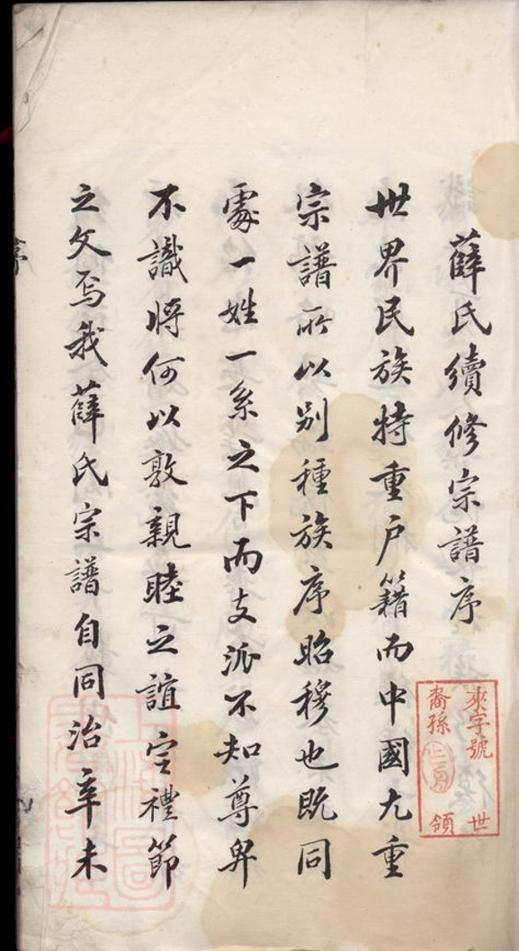 薛氏續修宗譜序
世界民族特重户籍而中國尢重
宗譜所以别種族序昭穆也既同
處一姓一系之下而支派不知尊卑
不識將何以敦親睦之誼定禮節
之文焉我薛氏宗譜自同治辛未
來字號 世
裔孫 領